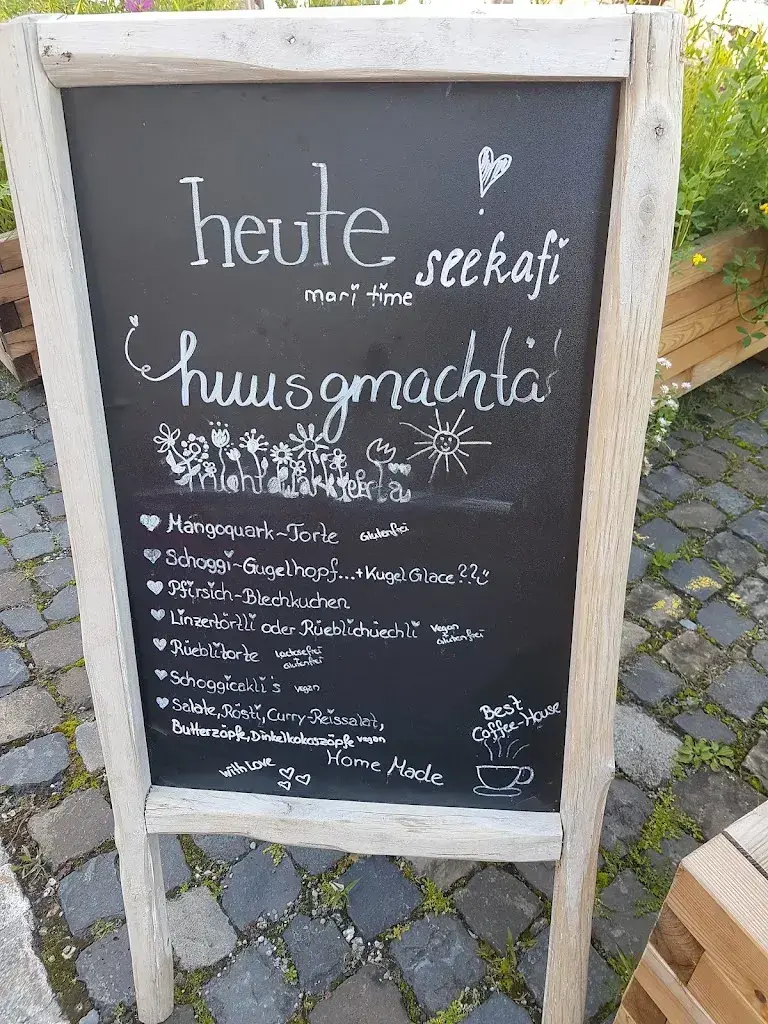 heute
seekafi
mari time
huusgmachtä
Mangoquark-Torte glutenfrei
Schoggi-Gugelhopf...+Kugel Glace??
Pfirsich-Blechkuchen
Linzertörtli oder Rüeblichüechli vegan glutenfrei
Rüeblitorte lactosefrei glutenfrei
Schoggicakli's vegan
Salate, Rösti, Curry-Reissalat,
Butterzöpfe, Dinkelkokoszöpfe vegan
Best
Coffee-House
With Love
Home Made